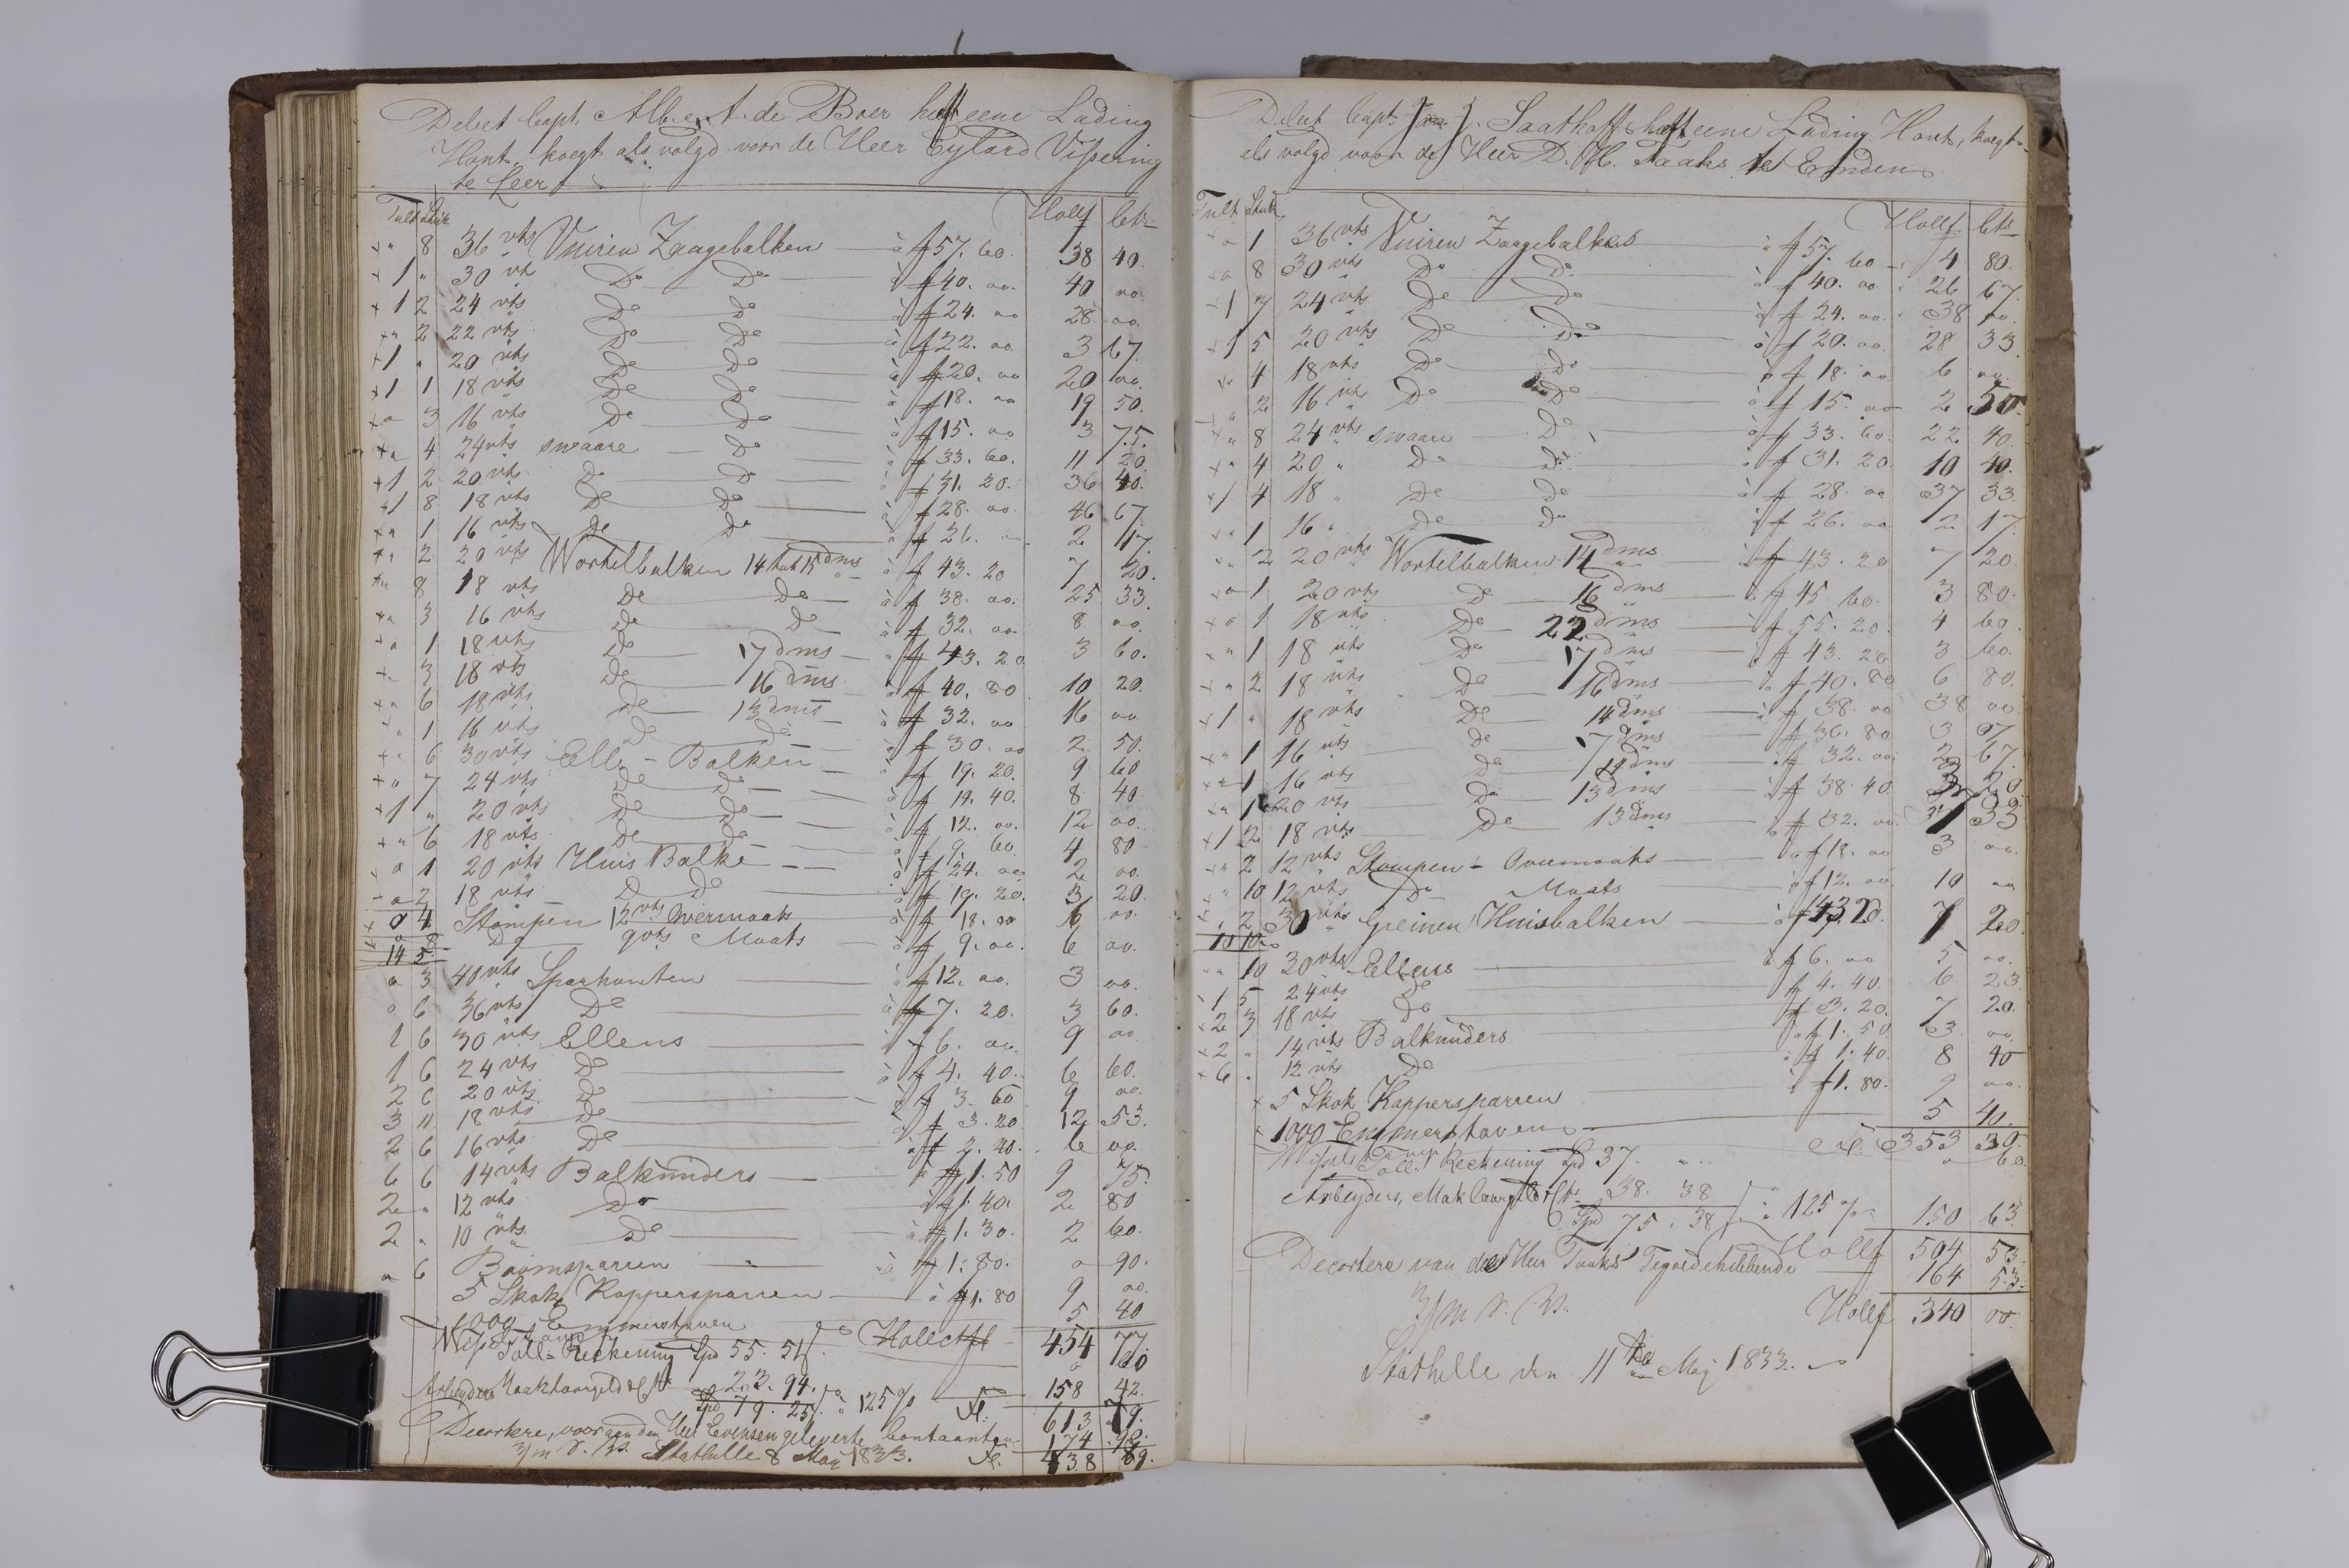 Debet Capt. Albert A. de Boer heeft eene Lading
Hout, koegt als volgd voor de Heer Eylard Vissering
te Leer
Tult Stuk Hollf Cts
" 8 36 vts Vuiren Zaagebalken à f 57. 60. 38 40.
1 " 30 vt Do Do à f 40. 00. 40 00.
1 2 24 vts Do Do à f 24. 00 28 00.
" 2 22 vts Do Do à f 22. 00 3 67.
1 " 20 vts Do Do à f 20. 00 20 00.
1 1 18 vts Do Do à f 18. 00 19 50.
" 3 16 vts Do Do à f 15. 00 3 75.
" 4 24 vts swaare Do à f 33. 60. 11 20.
1 2 20 vts Do Do à f 31. 20. 36 40.
1 8 18 vts Do Do à f 28. 00. 46 67.
" 1 16 vts Do Do à f 26. 2 17.
" 2 20 vts Wortelbalken 14 tut 15 dms à f 43. 20 7 20.
" 8 18 vts Do Do à f 38. 00. 25 33.
" 3 16 vts Do Do à f 32. 00. 8 00.
" 1 18 vts Do 17 dms à f 43. 20 3 60.
" 3 18 vts Do 16 dms à f 40. 80 10 20.
" 6 18 vts Do 13 dms à f 32. 00 16 00
" 1 16 vts Do Do à f 30. 00 2 50.
" 6 30 vts Elle - Balken à f 19. 20. 9 60
" 7 24 vts Do Do à f 14. 40. 8 40
1 " 20 vts Do Do à f 12. 00. 12 00.
" 6 18 vts Do Do à f 9. 60 4 80
" 1 20 vts Huis Balke à f 24. 00 2 00.
" 2 18 vts Do Do à f 19. 20. 3 20.
0 4 Stompen 12 vts Overmaats à f 18. 00 6 00.
" 8 Do 9 vts Maats à f 9. 00. 6 00.
14 5
" 3 40 vts Sparhouten à f 12. 00. 3 00.
" 6 36 vts Do à f 7. 20. 3 60.
1 6 30 vts Ellens à f 6. 00. 9 00
1 6 24 vts Do à f 4. 40. 6 60.
2 6 20 vts Do à f 3. 60 9 00.
3 11 18 vts Do à f 3. 20 12 53.
2 6 16 vts Do à f 2. 40. 6 00.
6 6 14 vts Balkunders à f 1. 50 9 75.
2 " 12 vts Do à f 1. 40. 2 80
2 " 10 vts Do à f 1. 30. 2 60.
" 6 Boomsparren à f 1. 80. 0 90.
5 Skok Kappersparren à f 1. 80 9 00.
1000 Emmerstaven 5 40
Hollct f 454 77.
Toll Rekening Spd 55. 51 0 60
Arbeyders Maaklaargeld &c 23. 94.
Spd 79. 25 à 125 % Fl. 158 42.
613 79.
Decortere, voor aan den Heer Evensen geleverte Contaanten 174
Stathelle 8 May 1833. Fl. 438 89.
Debet Capt. J. Saathoff heeft eene Lading Hout, koegt
als volgd voor de Heer D. H. Taaks te Emden
Tult Stuk Hollf Cts
" 1 36 vts Vuiren Zaagebalkes à f 57. 60 4 80.
" 8 30 vts Do Do à f 40. 00 26 67.
1 7 24 vts Do Do à f 24. 00. 38 00
1 5 20 vts Do Do à f 20. 00. 28 33.
" 4 18 vts Do Do à f 18. 00 6 00.
" 2 16 vts Do Do à f 15. 00 2 50.
" 8 24 vts swaare Do à f 33. 60. 22 40.
" 4 20 " Do Do à f 31. 20. 10 40.
1 4 18 " Do Do à f 28. 00 37 33.
" 1 16 " Do Do à f 26. 00 2 17.
" 2 20 vts Wortelbalken 14 dms à f 43. 20 7 20.
" 1 20 vts Do 16 dms à f 45. 60. 3 80.
" 1 18 vts Do 22 dms à f 55. 20. 4 60.
" 1 18 vts Do 17 dms à f 43. 20 3 60.
" 2 18 vts Do 16 dms à f 40. 80 6 80.
1 " 18 vts Do 14 dms à f 38. 00 38 00
" 1 16 vts Do 17 dms f 36. 80 3 07
" 1 16 vts Do 14 dms f 32. 00 2 67.
" 1 20 vts Do 13 dms f 38. 40 3 20
1 2 18 vts Do 13 dms à f 32. 00 37 33
" 2 12 vts Stompen - Overmaats à f 18. 00 3 00.
" 10 12 vts Do Maats à f 12. 00 10 00
" 2 30 vts Greinen Huisbalken à f 43. 20. 7 20.
10 10
" 10 30 vts Ellens à f 6. 00 5 00.
1 5 24 vts Do f 4. 40. 6 23.
2 3 18 vts Do f 3. 20. 7 20.
2 " 14 vts Balkunders à f 1. 50. 3 00.
6 " 12 vts Do à f 1. 40. 8 40
5 Skok Kappersparren à f 1. 80. 9 00.
1000 Emmerstaven 5 40.
Fl. 353 30.
Toll Rekening Spd 37. " 60
Arbeyders, Maklaargeld &c 38. 38
Spd 75. 38 à 125 % 150 63.
Hollf 504 53.
Decortere van den Heer Taaks Tegoedehebbende 164 53.
3/m d. d. Hollf 340 00
Stathelle den 11te May 1833.